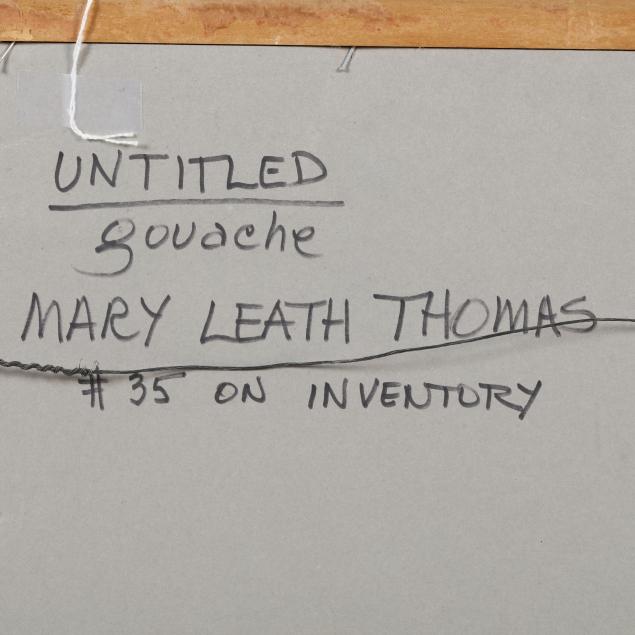 UNTITLED
gouache
MARY LEATH THOMAS
# 35 ON INVENTORY